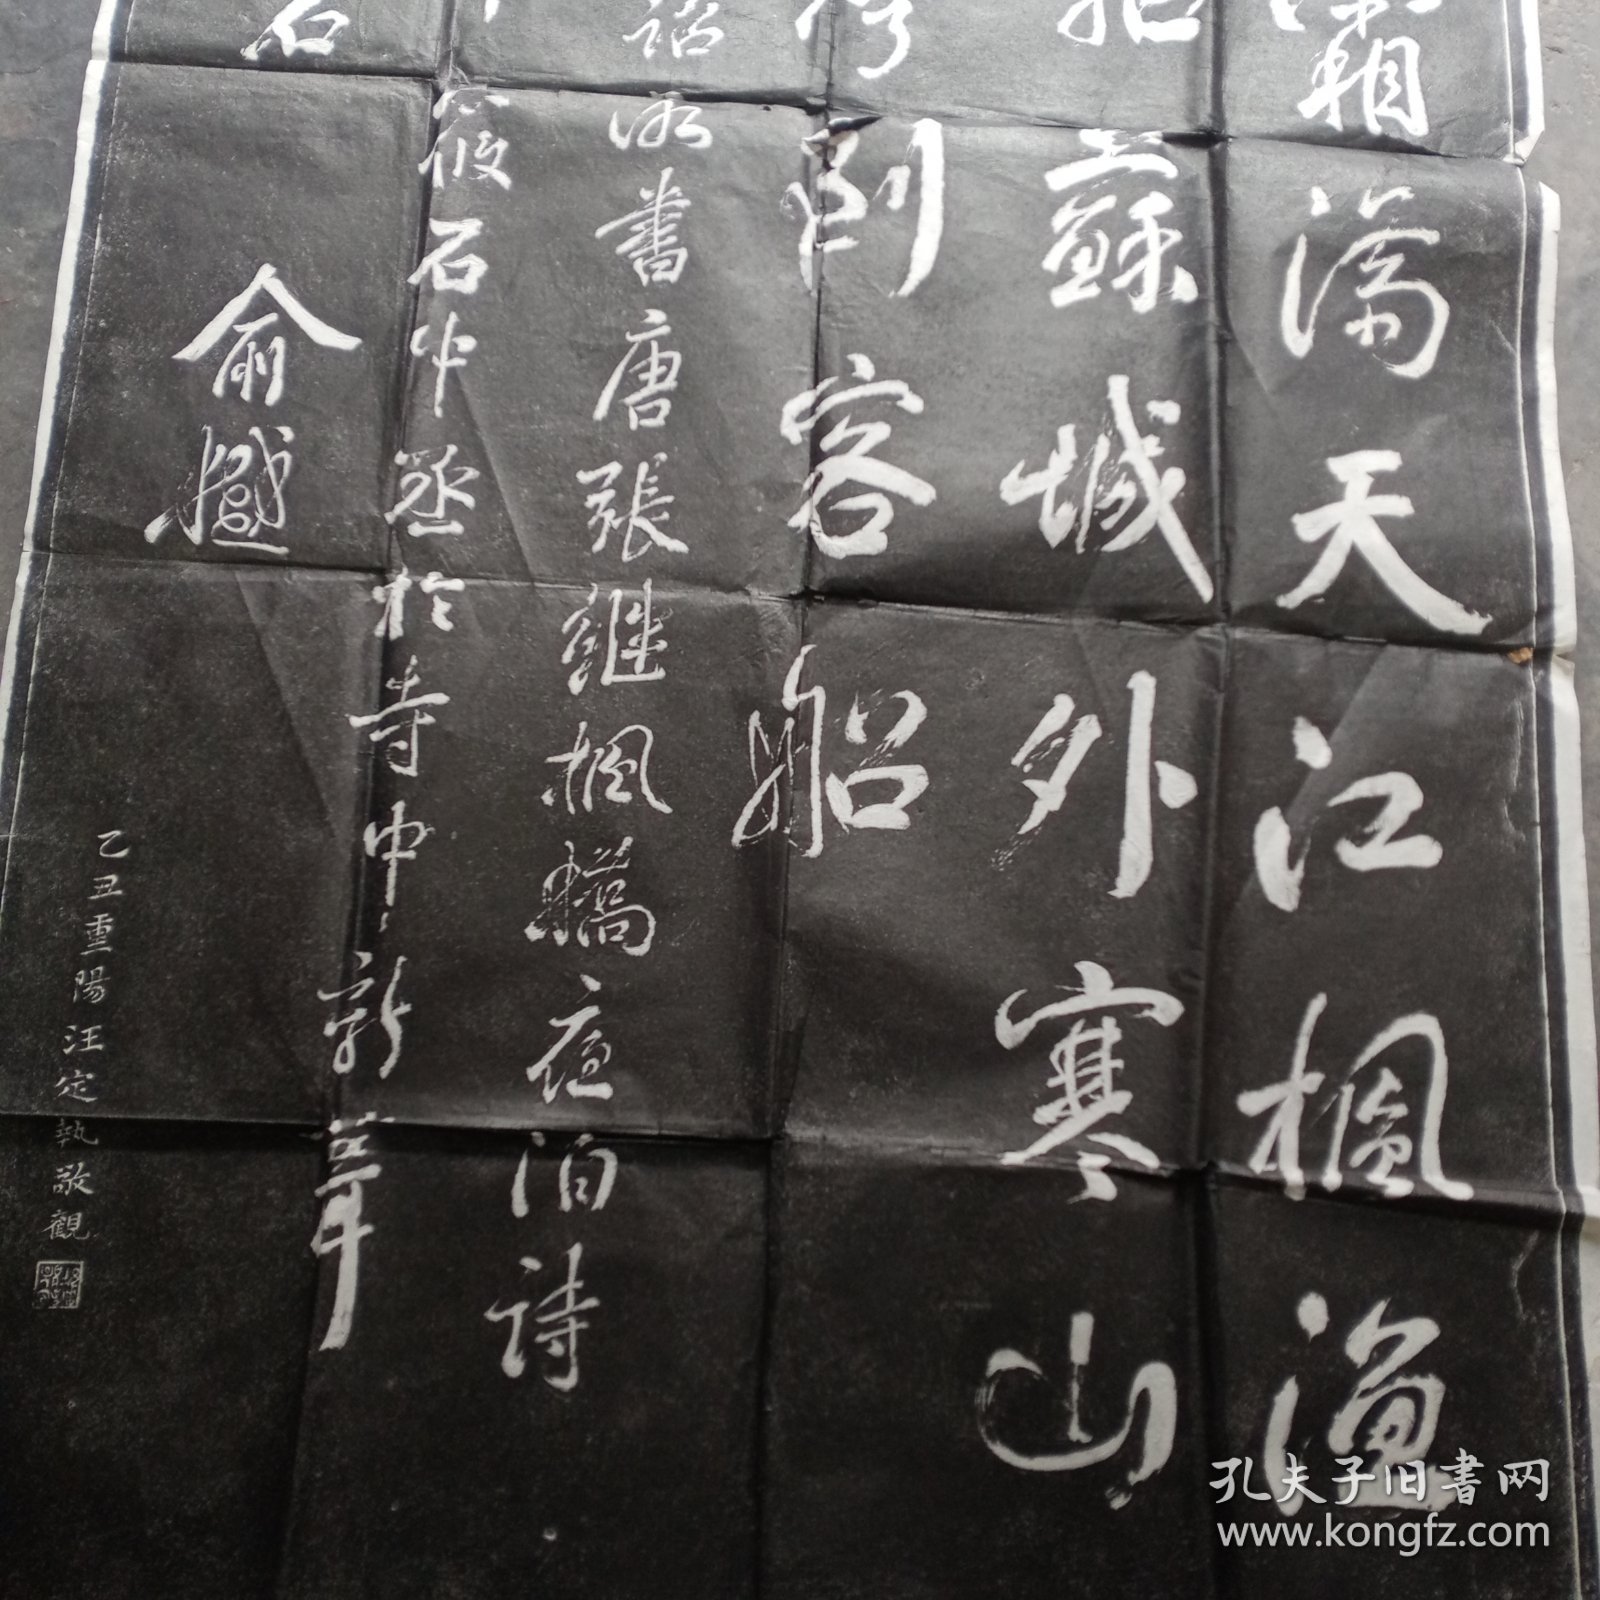 霜滿天江楓漁
蘇城外寒山
到客船
書唐張繼楓橋夜泊詩
筱石中丞於寺中新葺
俞樾
石
乙丑重陽汪定執敬觀
孔夫子旧书网
www.kongfz.com